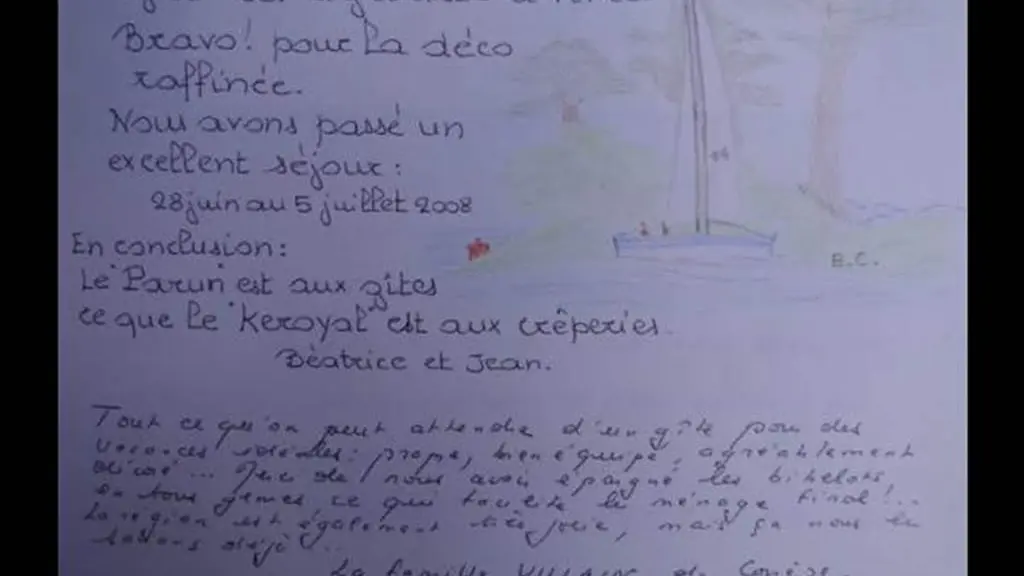 Bravo! pour la déco
raffinée.
Nous avons passé un
excellent séjour :
28 juin au 5 juillet 2008
En conclusion :
Le "Parun" est aux gîtes
ce que le "Keroyal" est aux crêperies.
B.C.
Béatrice et Jean.
Tout ce qu'on peut attendre d'un gîte pour des
vacances idéales : propre, bien équipé, agréablement
décoré... Jeu de nous avoir épargné les bibelots
en tous genres ce qui facilite le ménage final !..
La région est également très jolie, mais ça nous le
savons déjà...
La famille de